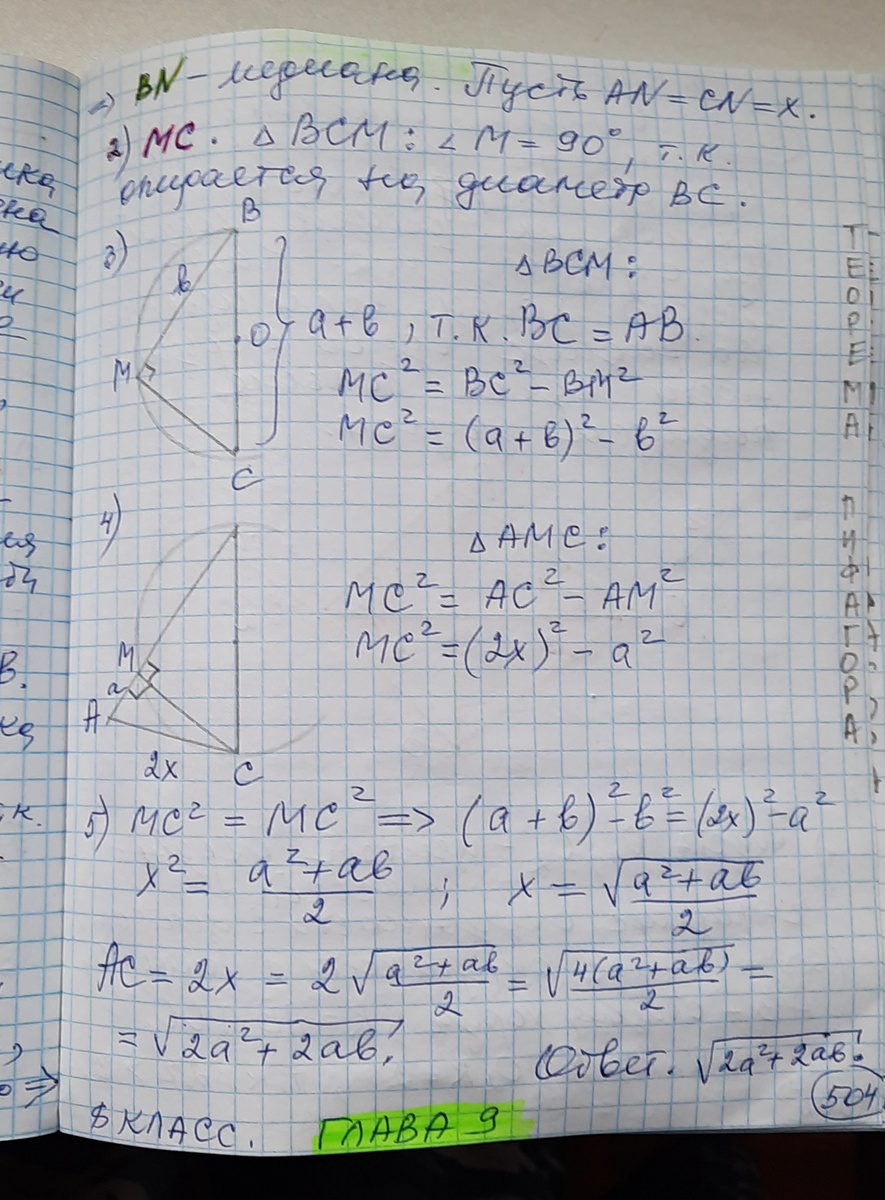 => BN – медиана. Пусть AN = CN = x.
2) MC. △ BCM : ∠ M = 90°, т.к.
опирается на диаметр BC.
3)
B
b
M
O
C
△BCM :
a+b , т.к. BC = AB.
MC² = BC² – BM²
MC² = (a+b)² – b²
4)
M
a
A
2x
C
△AMC :
MC² = AC² – AM²
MC² = (2x)² – a²
5) MC² = MC² => (a+b)² – b² = (2x)² – a²
x² = (a²+ab)/2 ; x = √((a²+ab)/2)
AC = 2x = 2√((a²+ab)/2) = √(4(a²+ab)/2) =
= √(2a²+2ab)
Ответ. √(2a²+2ab)
504
8 КЛАСС. ГЛАВА 9
ТЕОРЕМА ПИФАГОРА